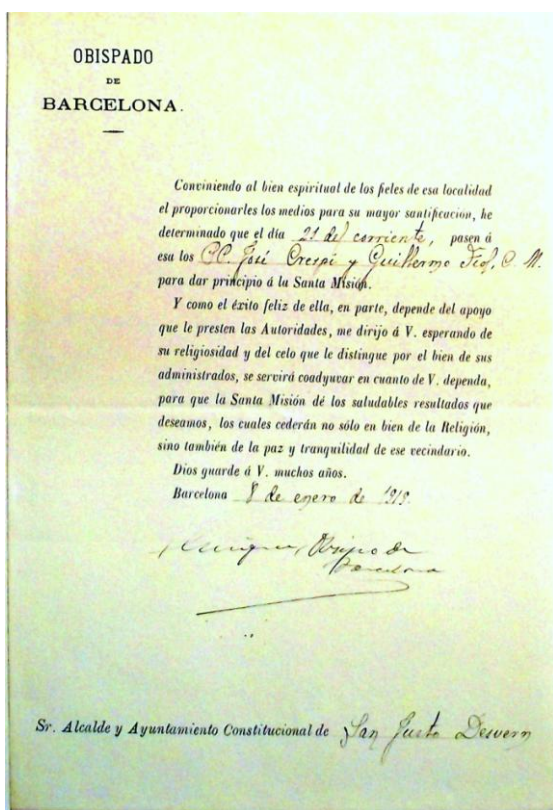 OBISPADO
DE
BARCELONA.
Conviniendo al bien espiritual de los fieles de esa localidad
el proporcionarles los medios para su mayor santificación, he
determinado que el día 21 del corriente, pasen á
esa los José Crespí y Guillermo C. M.
para dar principio á la Santa Misión.
Y como el éxito feliz de ella, en parte, depende del apoyo
que le presten las Autoridades, me dirijo á V. esperando de
su religiosidad y del celo que le distingue por el bien de sus
administrados, se servirá coadyuvar en cuanto de V. dependa,
para que la Santa Misión dé los saludables resultados que
deseamos, los cuales cederán no sólo en bien de la Religión,
sino también de la paz y tranquilidad de ese vecindario.
Dios guarde á V. muchos años.
Barcelona 8 de enero de
Enrique, Obispo de
Barcelona
Sr. Alcalde y Ayuntamiento Constitucional de San Justo Desvern